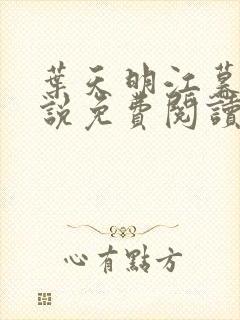 葉天明江慕
說免費閱讀
心有點方